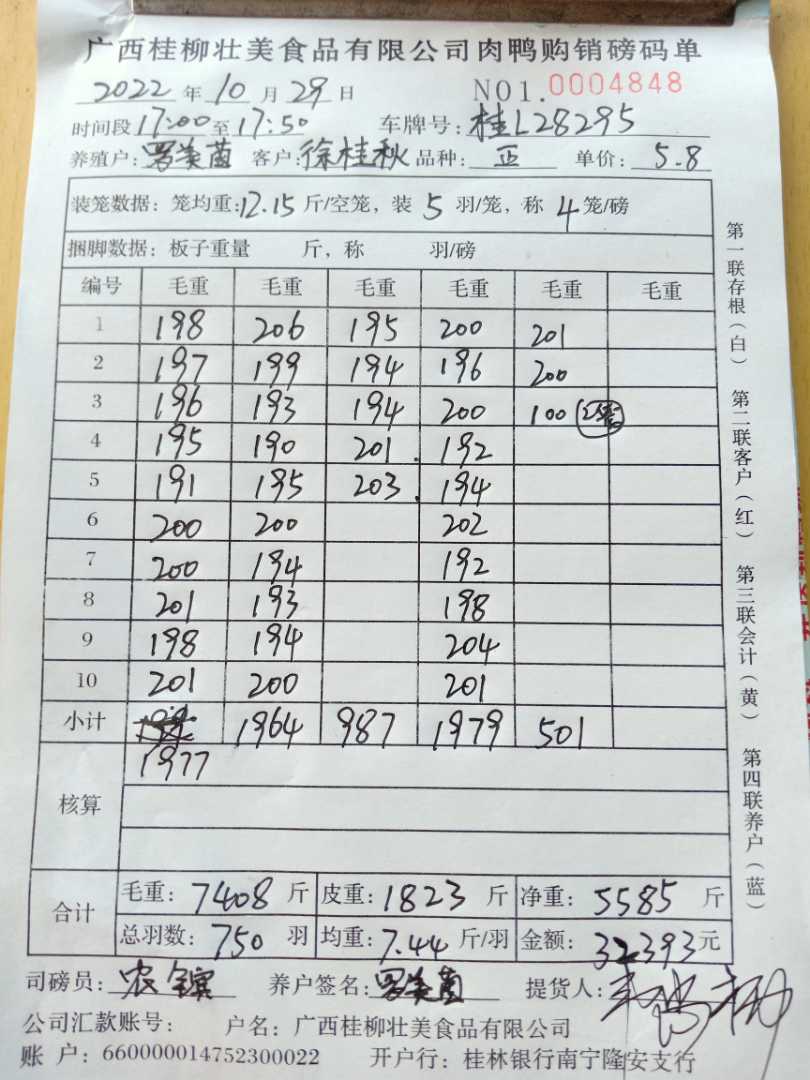 广西桂柳壮美食品有限公司肉鸭购销磅码单
2022 年 10 月 29 日 NO1.0004848
时间段17:00至17:50 车牌号:桂L28295
养殖户:罗美茵 客户:徐桂秋 品种: 正 单价: 5.8
装笼数据:笼均重:12.15 斤/空笼,装 5 羽/笼,称 4 笼/磅
捆脚数据:板子重量 斤,称 羽/磅
编号 毛重 毛重 毛重 毛重 毛重 毛重
1 198 206 195 200 201
2 197 199 194 196 200
3 196 193 194 200 100
4 195 190 201. 192
5 191 195 203. 194
6 200 200 202
7 200 194 192
8 201 193 198
9 198 194 204
10 201 200 201
小计 1964 987 1979 501
1977
核算
合计
毛重: 7408 斤 皮重: 1823 斤 净重: 5585 斤
总羽数: 750 羽 均重: 7.44 斤/羽 金额: 32393元
司磅员: 养户签名: 罗美茵 提货人:
公司汇款账号: 户名:广西桂柳壮美食品有限公司
账 户:660000014752300022 开户行:桂林银行南宁隆安支行
第一联存根(白) 第二联客户(红) 第三联会计(黄) 第四联养户(蓝)